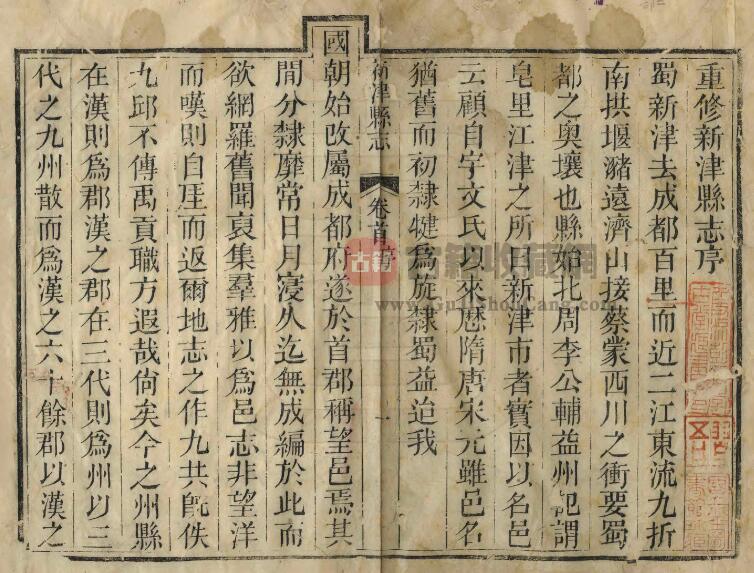 重修新津縣志序
蜀新津去成都百里而近二江東流九折
南拱堰瀦遠濟山接蔡蒙西川之衝要蜀
都之奧壤也縣始北周李公輔益州記謂
皂里江津之所曰新津市者實因以名邑
云顧自宇文氏以來歷隋唐宋元雖邑名
猶舊而初隸犍爲旋隸蜀益迨我
新津縣志 卷首 序 一
國朝始改屬成都府遂於首郡稱望邑焉其
間分隸靡常日月寖久迄無成編於此而
欲網羅舊聞裒集羣雅以爲邑志非望洋
而嘆則自厓而返爾地志之作九共旣佚
九邱不傳禹貢職方遐哉尙矣今之州縣
在漢則爲郡漢之郡在三代則爲州以三
代之九州散而爲漢之六十餘郡以漢之
古籍 古籍收藏網
www.GujiShouCang.com